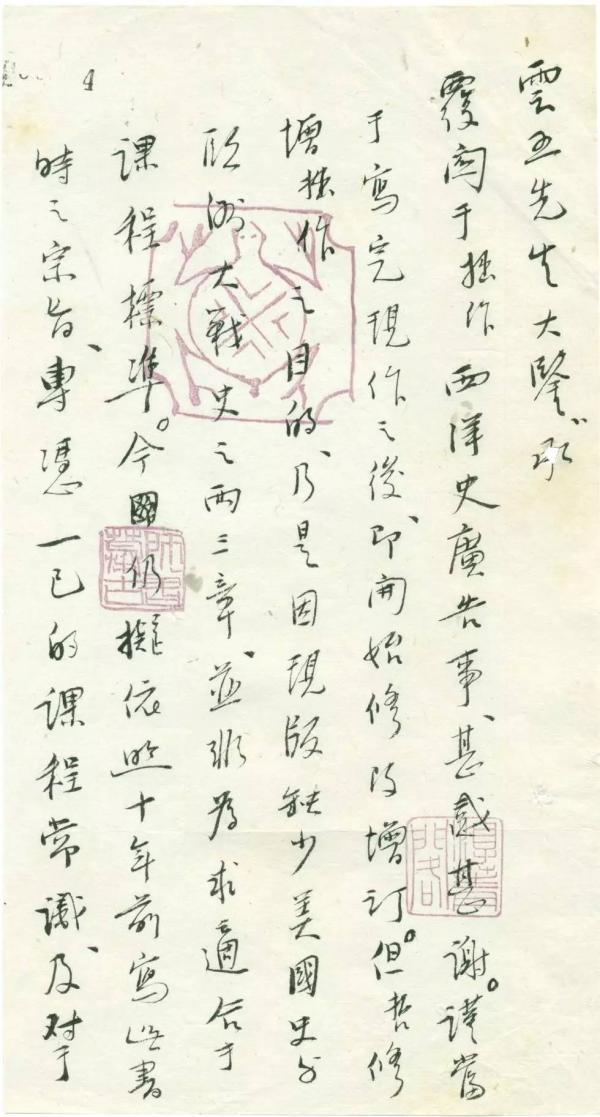 雲五先生大鑒、承
覆関于拙作西洋史廣告事、甚感甚謝。謹當
于寫完現作之後、即開始修改增訂。但哲修
增拙作之目的、乃是因現版缺少美國史与
欧洲大戰史之兩三章、並非為求適合于
課程標準。今仍擬依照十年前寫此書
時之宗旨、專憑一己的課程常識及、对于
4